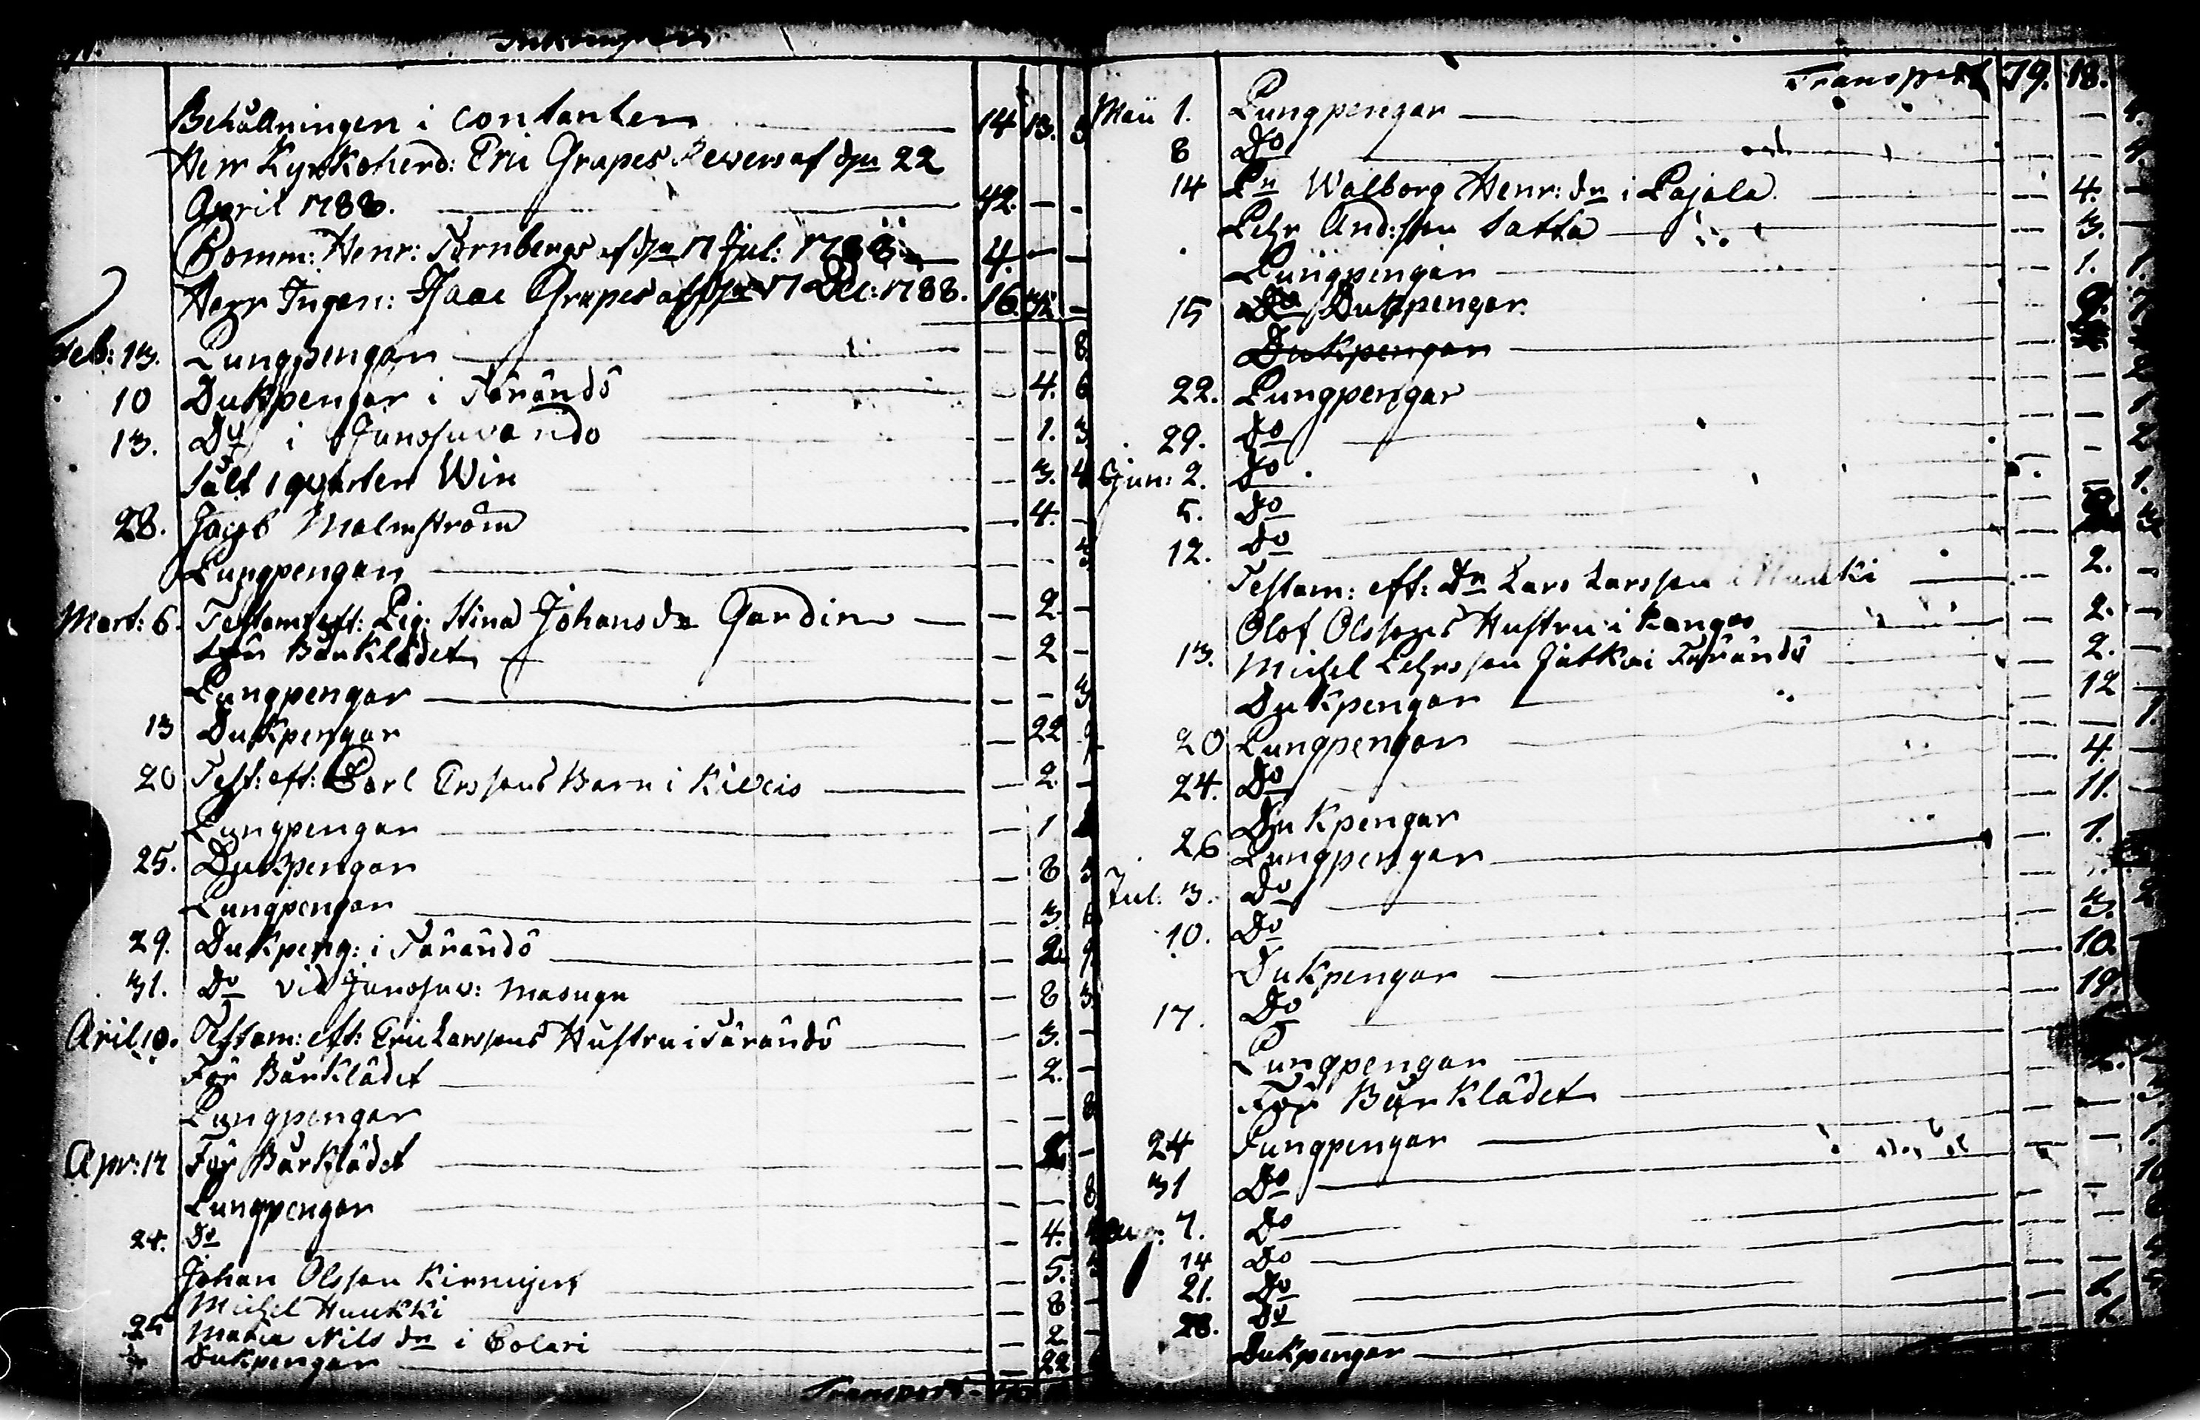 Inkomsten
Behållningen i contanten 14 13.
Herr Kyrkoherd: Eric Grapes Revers af den 22
April 1788. 42. – –
Comm: Henr: Törnbergs af den 17 Jul: 1788 4. – –
Herr Ingen: Isaac Grapes af den 17 Dec: 1788. 16. 32 –
Feb: 13. Pungpengar – – 8
10 Dukpengar i Tärändö 4. 6
13. Do i Junosuvando – 1. 3
Sålt 1 qvarter Win 3. 4
28. Jacob Malmström – 4. –
Pungpengar 3
Mart: 6. Testam: eft: Pig: Stina Johansdr Gardin – 2 –
för Bårklädet – 2 –
Pungpengar – – 3
13 Dukpengar – 22
20 Test: eft: Carl Erssons Barn i Kiexis – 2. –
Pungpengar – 1
25. Dukpengar – 8 3
Pungpengar – 3. 6
29. Dukpeng: i Tärändö – 2. 9
31. Do vid Junosuv: Masugn – 8 3
Aril 10. Testam: eft: Eric Larssons Hustru i Tärändö – 3. –
För Bårklädet – 2. –
Pungpengar – – 8
Apr: 17 För Bårklädet – 2. –
Pungpengar – – 8
24. Do – 4.
Johan Olsson – 5.
Michel Huukki – 8 –
25 Maria Nils dr i Colari – 2 –
Dukpengar – 22
Transport
Transport 79. 18.
Maii 1. Pungpengar – – 4.
8 Do – – 4.
14 Pn Walborg Henr: dr i Pajala – 4. –
Pehr And:sson Satta – 3. –
Pungpengar – 1. 1.
15 Do Dukpengar
Dukpengar
22. Pungpengar – – 2
29. Do – – 1
Jun: 2. Do – – 2
5. Do – – 1.
12. Do
Testam: eft: Dn Lars Larsson i Huuki – 2. –
Olof Olssons Hustru i Kanges – 2. –
13. Michel Pehrsson Jatkoi Tärändö – 2. –
Dukpengar – 12 –
20 Pungpengar – – 1.
24. Do – 4. –
Dukpengar – 11. –
26 Pungpengar – 1.
Jul: 3. Do
10. Do – 3.
Dukpengar – 10.
17. Do – 19.
Pungpengar
För Bårklädet
24 Pungpengar – – 1.
31 Do – – 10
Aug: 7. Do – –
14 Do – –
21. Do
28. Do
Dukpengar